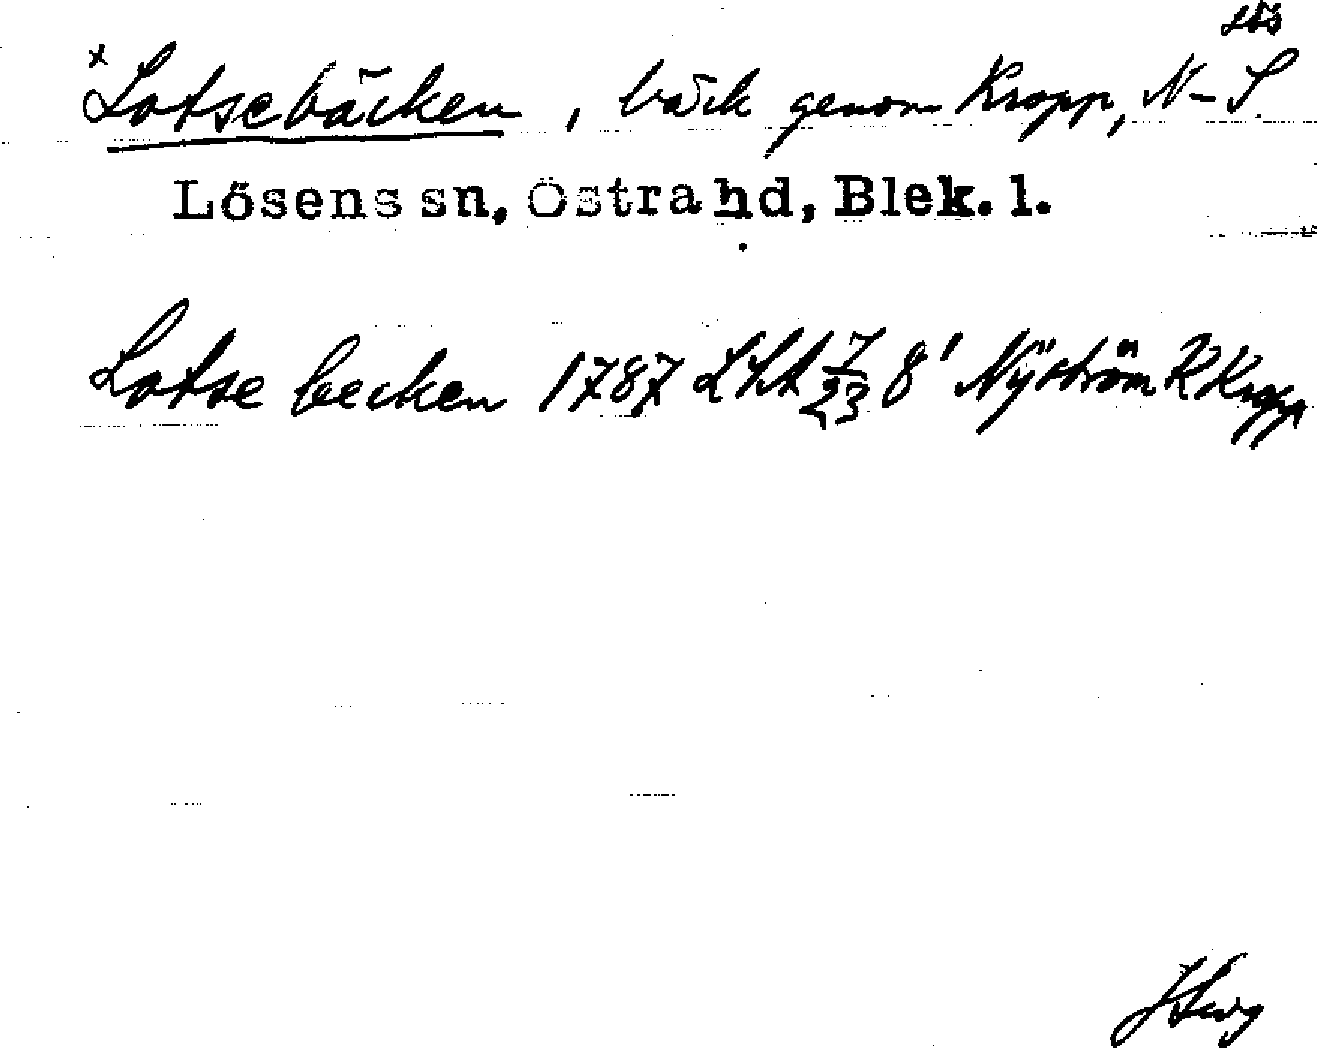 *Lotsebäcken, bäck genom Kropp, N-S.
Lösens sn, Östra hd, Blek. l.
Lotse becken 1787 Lht 7/23 8' Nyström R Kropp